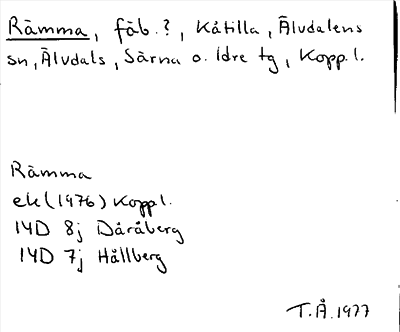 Rämma, fäb.?, Kåtilla, Älvdalens
sn, Älvdals, Särna o. Idre tg, Kopp.l.
Rämma
ek (1976) Koppl.
14D 8j Dåråberg
14D 7j Hållberg
T.Å. 1977